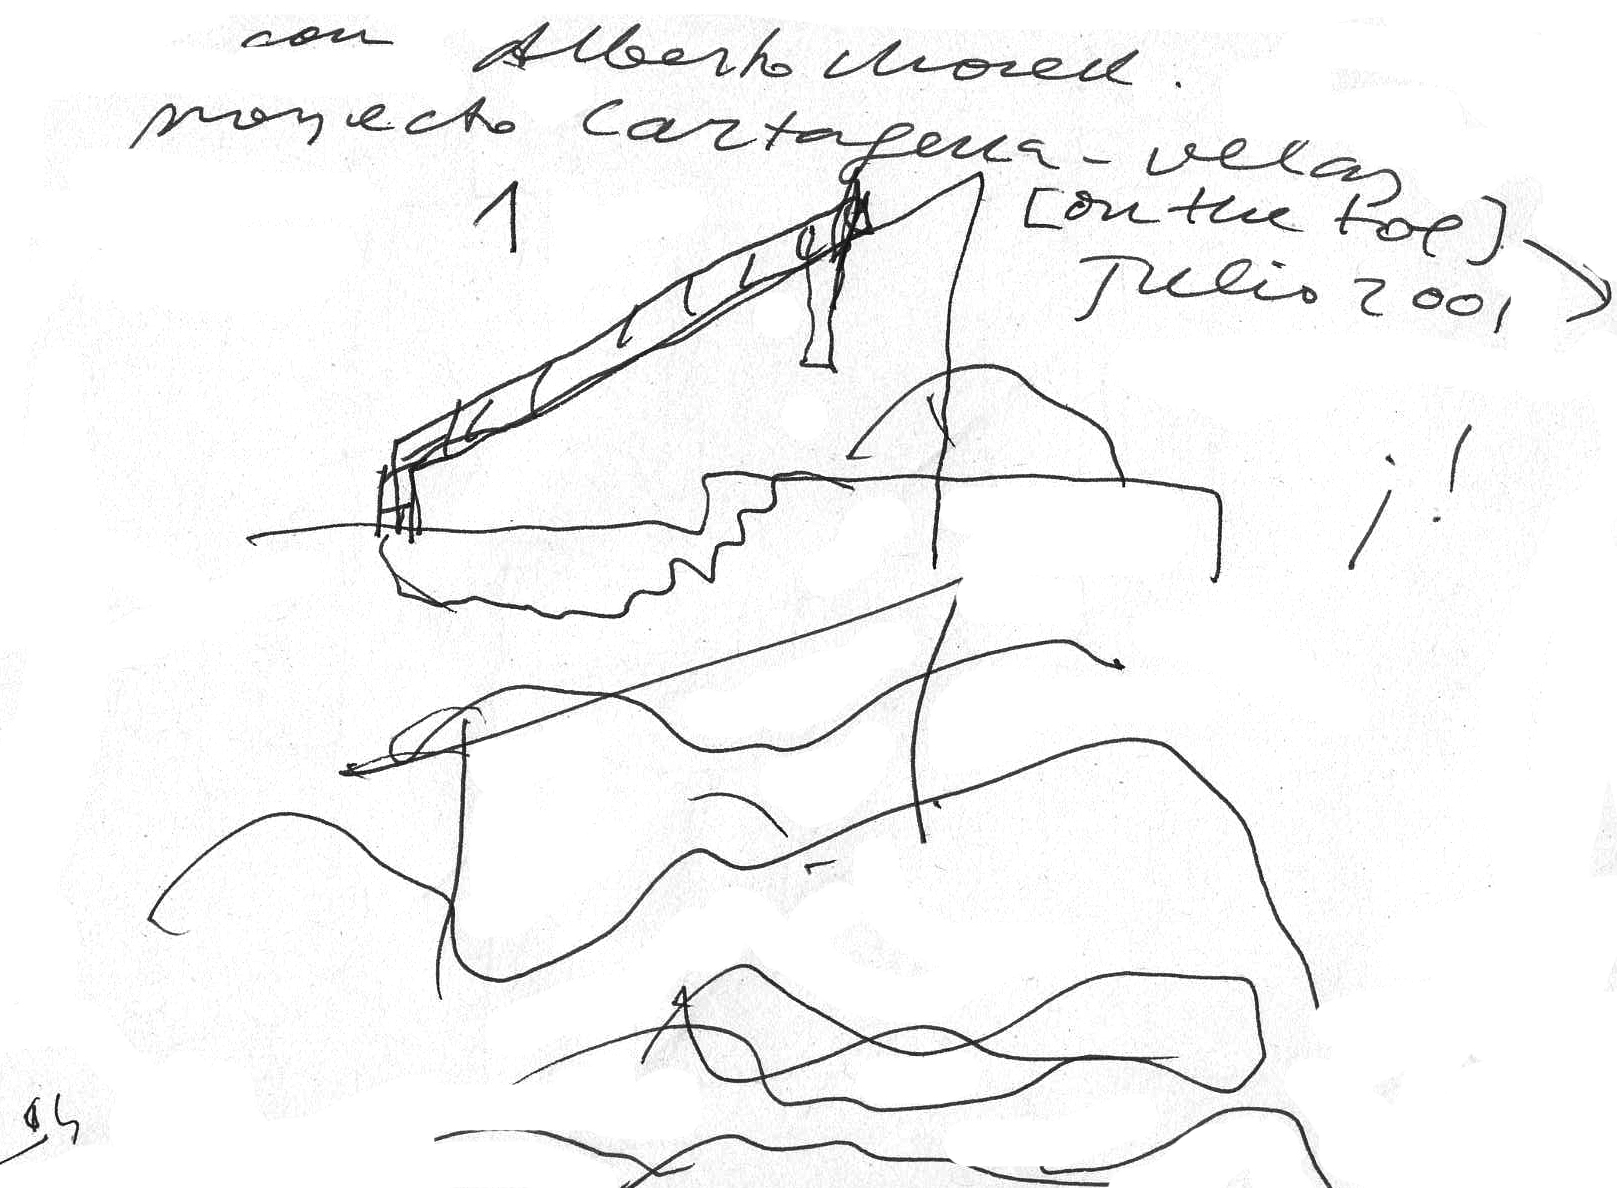 con Alberto Morell.
proyecto Cartagena - velas
1
[on the top]
Julio 2001
¡!